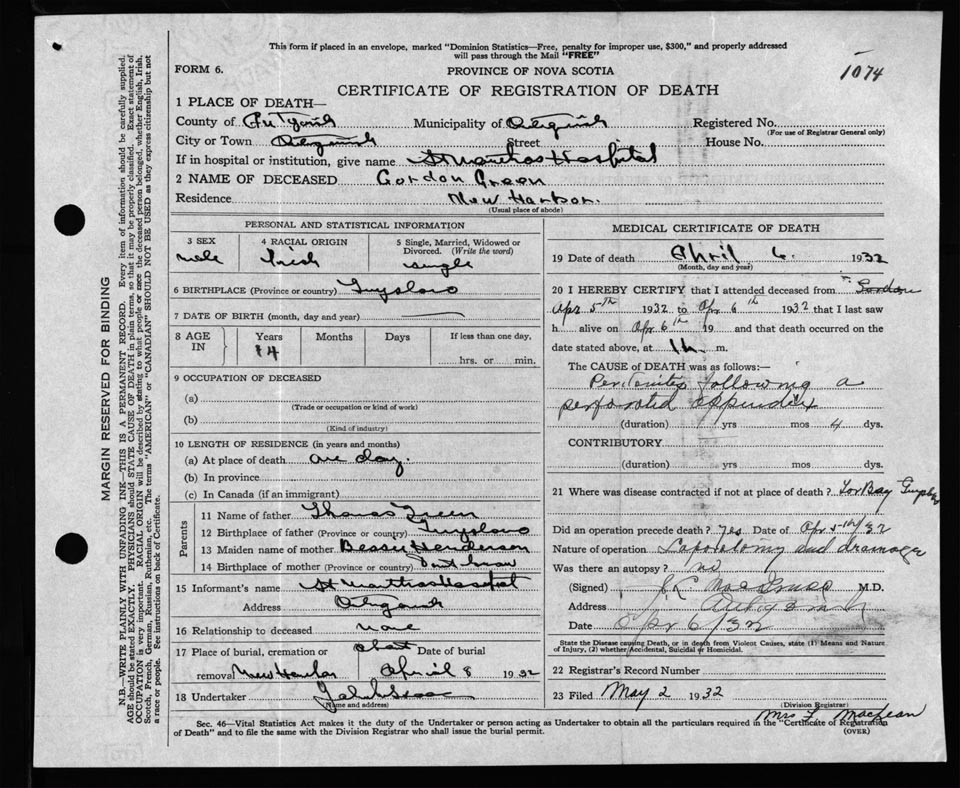 This form if placed in an envelope, marked "Dominion Statistics—Free, penalty for improper use, $300," and properly addressed
will pass through the Mail "FREE"
1074
FORM 6.
PROVINCE OF NOVA SCOTIA
CERTIFICATE OF REGISTRATION OF DEATH
1 PLACE OF DEATH—
County of Municipality of Registered No.
(For use of Registrar General only)
City or Town Street House No.
If in hospital or institution, give name St Marthas Hospital
2 NAME OF DECEASED Gordon Green
Residence New Harbor.
(Usual place of abode)
PERSONAL AND STATISTICAL INFORMATION
3 SEX
male
4 RACIAL ORIGIN
Irish
5 Single, Married, Widowed or Divorced. (Write the word)
single
6 BIRTHPLACE (Province or country) Guysboro
7 DATE OF BIRTH (month, day and year)
8 AGE IN
Years Months Days If less than one day,
14 hrs. or min.
9 OCCUPATION OF DECEASED
(a)
(Trade or occupation or kind of work)
(b)
(Kind of industry)
10 LENGTH OF RESIDENCE (in years and months)
(a) At place of death one day.
(b) In province
(c) In Canada (if an immigrant)
Parents
11 Name of father Thomas Green
12 Birthplace of father (Province or country) Guysboro
13 Maiden name of mother Bessie Henderson
14 Birthplace of mother (Province or country) Dont know
15 Informant's name St Marthas Hospital
Address
16 Relationship to deceased none
17 Place of burial, cremation or Date of burial
removal New Harbor April 8 1932
18 Undertaker
(Name and address)
MEDICAL CERTIFICATE OF DEATH
19 Date of death April 6. 1932
(Month, day and year)
20 I HEREBY CERTIFY that I attended deceased from
Apr 5th 1932 to Apr 6th 1932 that I last saw
h alive on Apr 6th 19 and that death occurred on
date stated above, at m.
The CAUSE OF DEATH was as follows:—
Peritonitis following a
perforated appendix
(duration) yrs mos 4 dys.
CONTRIBUTORY
(duration) yrs mos dys.
21 Where was disease contracted if not at place of death? Tor Bay
Did an operation precede death? Yes Date of Apr 5th/32
Nature of operation Laporotomy and drainage
Was there an autopsy? no
(Signed) M.D.
Address
Date Apr 6/32
State the Disease causing Death, or in death from Violent Causes, state (1) Means and Nature
of Injury, (2) whether Accidental, Suicidal or Homicidal.
22 Registrar's Record Number
23 Filed May 2 1932
(Division Registrar)
Mrs F. MacLean
Sec. 46—Vital Statistics Act makes it the duty of the Undertaker or person acting as Undertaker to obtain all the particulars required in the "Certificate of Registration
of Death" and to file the same with the Division Registrar who shall issue the burial permit.
(OVER)
MARGIN RESERVED FOR BINDING
N.B.—WRITE PLAINLY WITH UNFADING INK—THIS IS A PERMANENT RECORD. Every item of information should be carefully supplied.
AGE should be stated EXACTLY. PHYSICIANS should STATE CAUSE OF DEATH in plain terms, so that it may be properly classified. Exact statement of
OCCUPATION is very important. RACIAL ORIGIN will be described by stating to what people or race the deceased person belonged, whether English, Irish,
Scotch, French, German, Russian, Ruthenian, etc. The terms "AMERICAN" or "CANADIAN" SHOULD NOT BE USED as they express citizenship but not
a race or people. See instructions on back of Certificate.